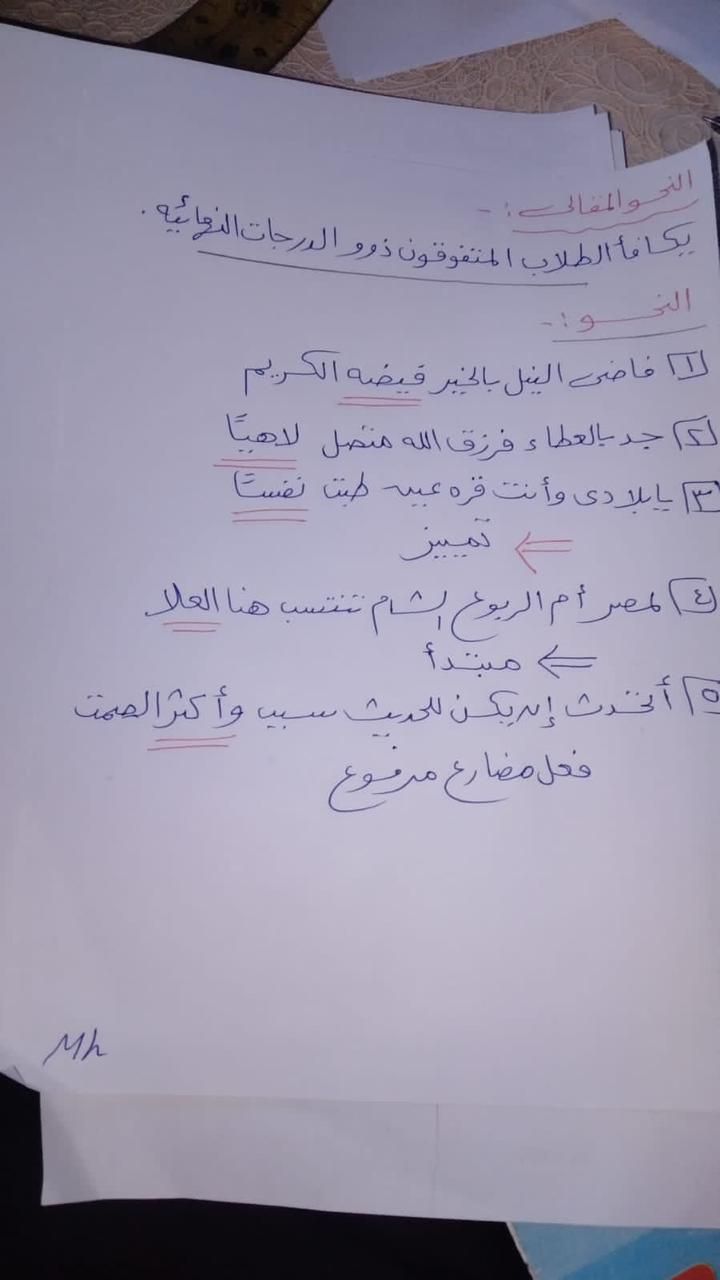 النحو المقالى :-
يكافأ الطلاب المتفوقون ذوو الدرجات النهائيه .
النحو :-
١ فاضى النيل بالخير فيضه الكريم
٢ جد بالعطاء فرزق الله متصل لاهيًا
٣ يا بلادى وأنت قره عينى طبت نفسًا
تمييز
٤ لمصر أم لربوع الشام تنتسب هنا العلا
مبتدأ
٥ أتحدث إن يكن للحديث سبب وأكثر الصمت
فعل مضارع مرفوع
Mh